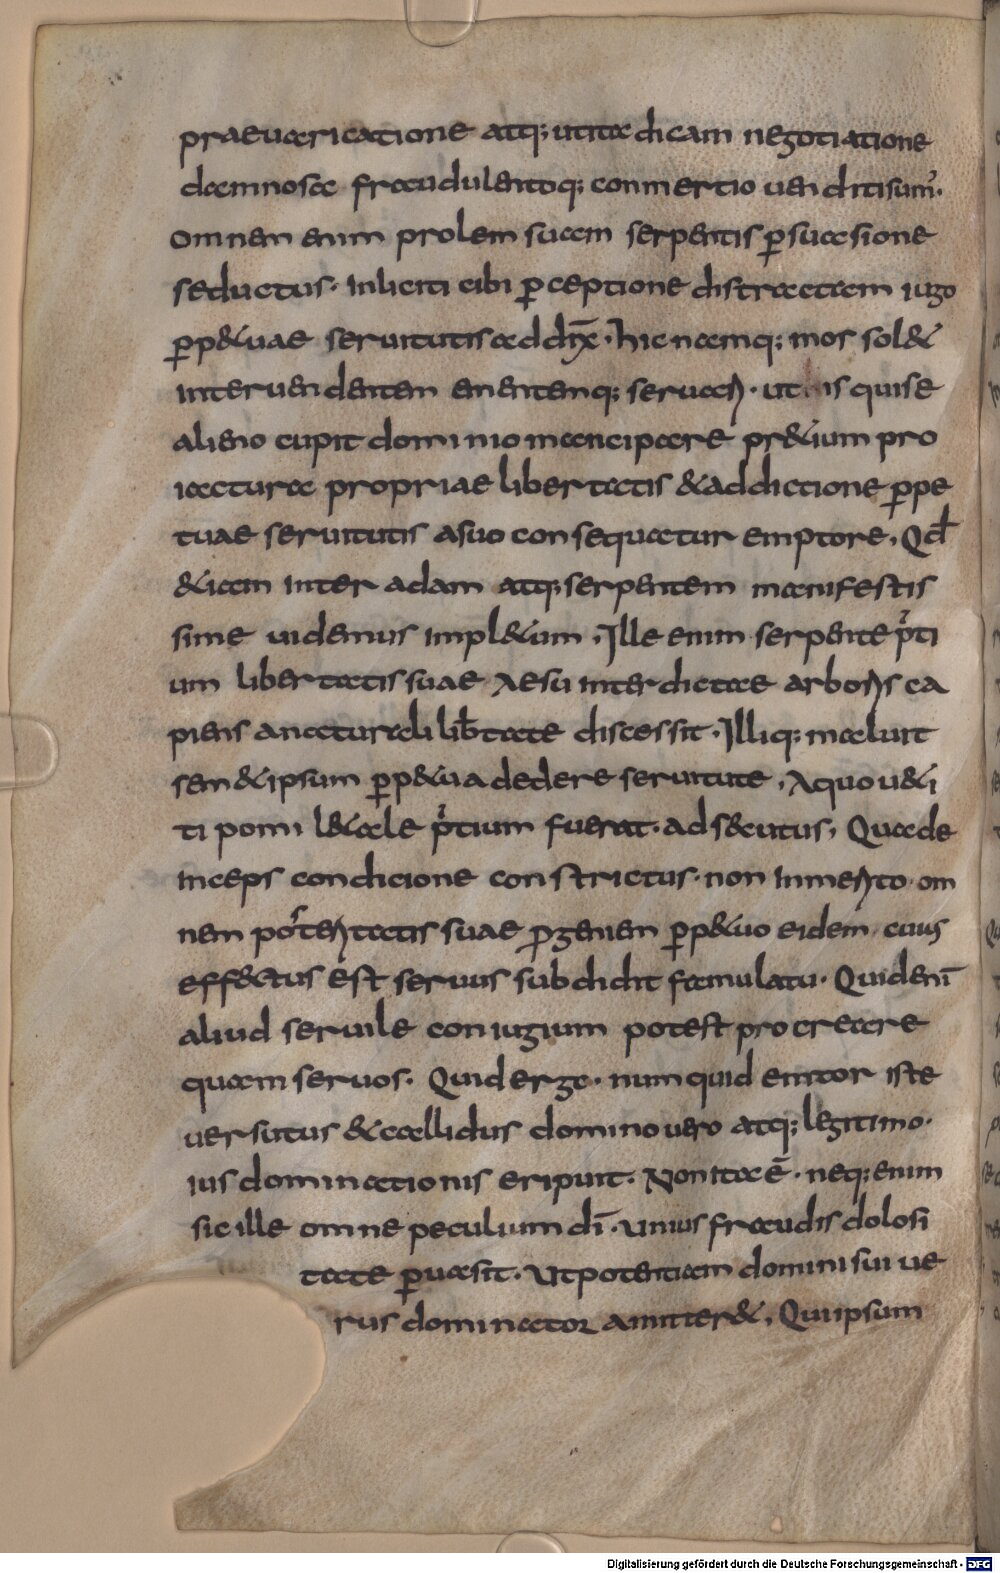 praeuaricatione atq; ut ita dicam negotiatione
damnosa fraudulentoq; conmertio uenditi sum̄.
Omnem enim prolem suam serpentis p̱suasione
seductus. Inliciti cibi p̱ceptione distractam iugo
p̱p&uae seruitutis addix̄. hic namq; mos sol&
inter uendentem ementemq; seruari. ut is qui se
alieno cupit dominio mancipare pr&ium pro
iactura propriae libertatis & addictione p̱pe
tuae seruitutis a suo consequatur emptore, Qđ
&iam inter adam atq; serpentem manifestis
sime uidemus impl&um, Ille enim serpente p̄ti
um libertatis suae Aesu interdictae arboris ca
piens a naturali lib̄tate discessit. Illiq; maluit
sem&ipsum p̱p&ua dedere seruitute, A quo u&i
ti pomi l&ale p̄tium fuerat. adsecutus, Qua de
inceps condicione constrictus. non inmerito om
nem posteritatis suae ꝓgeniem p̱p&uo eidem cuius
effectus est seruus subdidit famulatu. Quid enī
aliud seruile coniugium potest procreare
quam seruos. Quid ergo. numquid emtor iste
uersutus & callidus domino uero atq; legitimo.
ius dominationis eripuit. Non ita ē. neq; enim
sic ille omne peculium dī. unius fraudis dolosi
tate p̱uasit. Ut potentiam domini sui ue
rus dominator amitter&, Qui ipsum
Digitalisierung gefördert durch die Deutsche Forschungsgemeinschaft - DFG